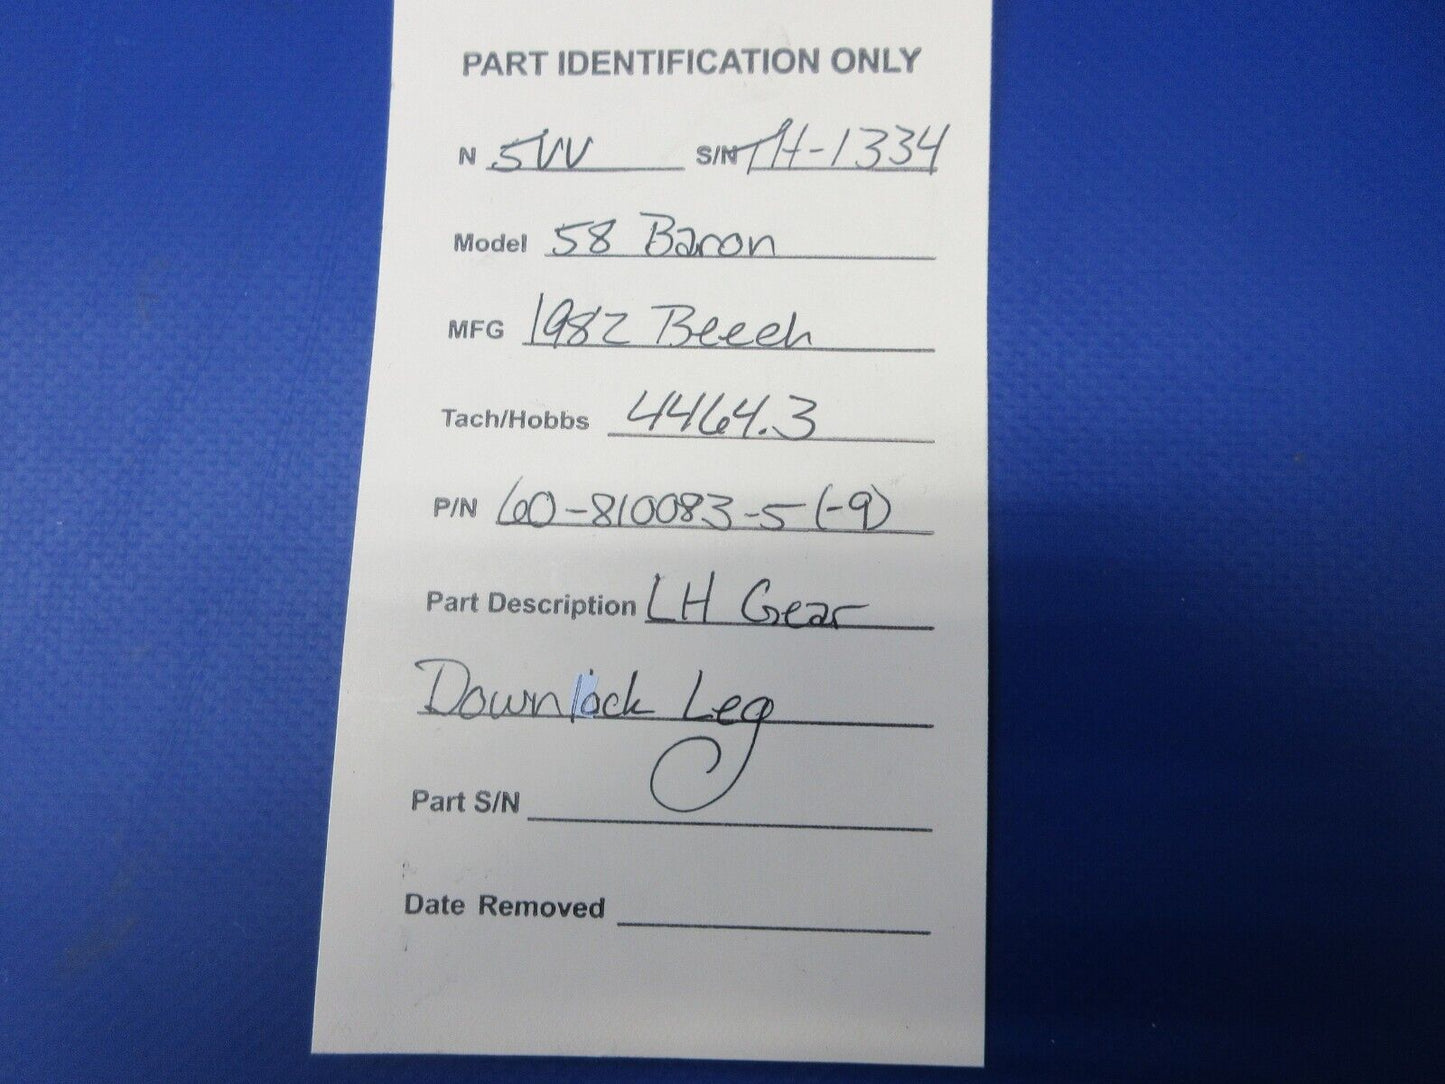 PART IDENTIFICATION ONLY
N 5VV S/N TH-1334
Model 58 Baron
MFG 1982 Beech
Tach/Hobbs 4464.3
P/N 60-810083-5 (-9)
Part Description LH Gear
Downlock Leg
Part S/N
Date Removed